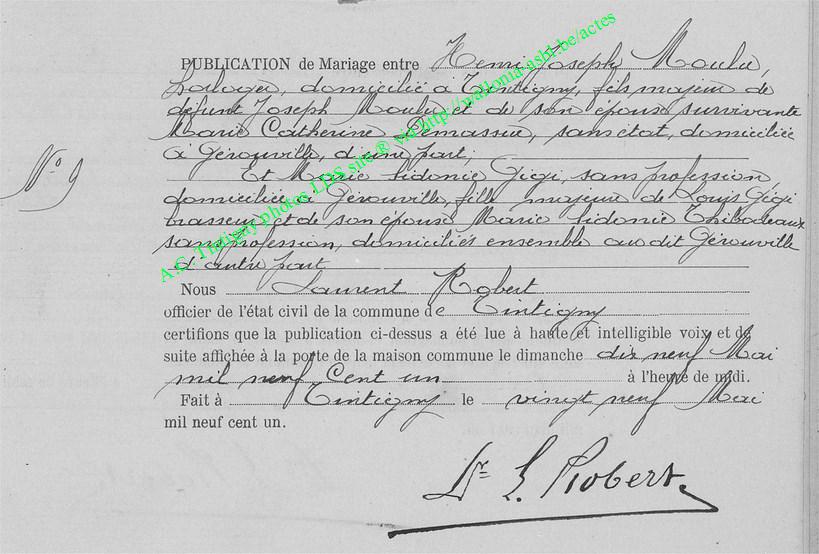 PUBLICATION de Mariage entre Henri Joseph Moulu,
horloger, domicilié à Tintigny, fils majeur de
défunt Joseph Moulu et de son épouse survivante
Marie Catherine sans état, domiciliée
à Gérouville, d'une part,
Et Marie Sidonie Gigi, sans profession
domiciliée à Gérouville, fille majeure de Louis Gigi
brasseur et de son épouse Marie Sidonie Thibodeaux
sans profession, domiciliés ensemble au dit Gérouville
d'autre part
N° 9
Nous Laurent Robert
officier de l'état civil de la commune de Tintigny
certifions que la publication ci-dessus a été lue à haute et intelligible voix et de
suite affichée à la porte de la maison commune le dimanche dix neuf Mai
mil neuf Cent un à l'heure de midi.
Fait à Tintigny le vingt neuf Mai
mil neuf cent un.
Dr L. Robert
A.C. Tintigny photos LDS site ® via http://wallonia-asbl.be/actes